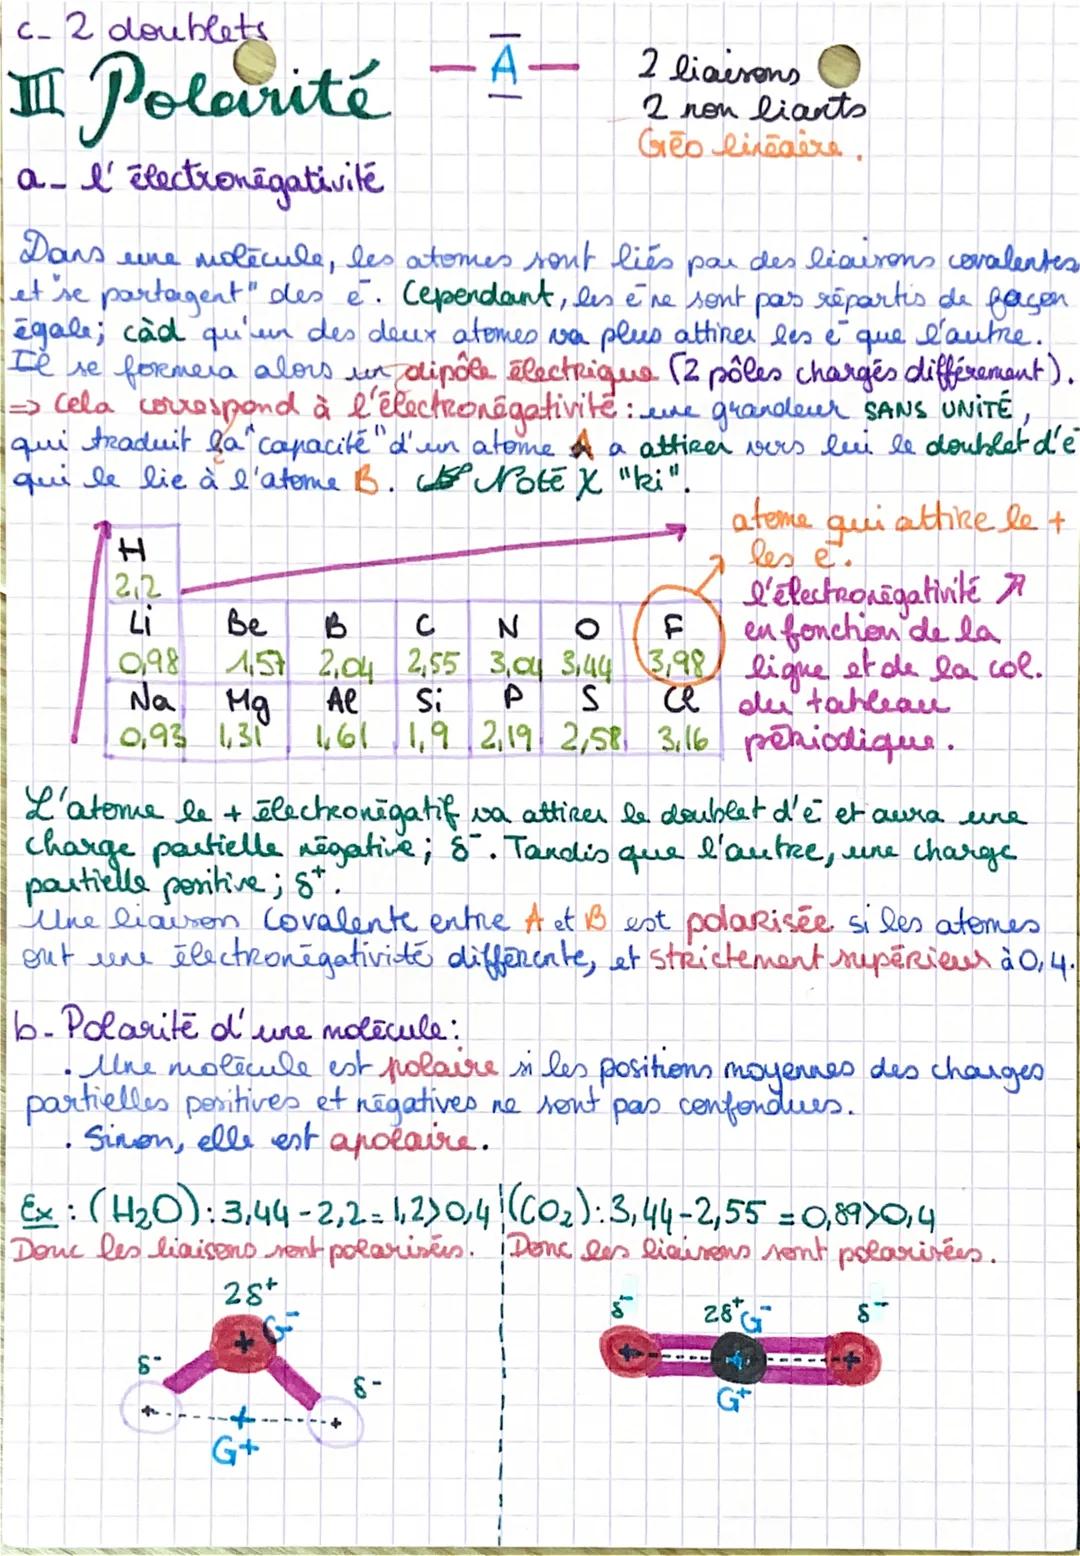 c_ 2 doublets
III Polarité
— A —
2 liaisons
2 non liants
Géo linéaire.
a_ l'électronégativité
Dans une molécule, les atomes sont liés par des liaisons covalentes
et "se partagent" des e⁻. Cependant, les e⁻ ne sont pas répartis de façon
égale; càd qu'un des deux atomes va plus attirer les e⁻ que l'autre.
Il se formera alors un dipôle électrique (2 pôles chargés différement).
=> Cela correspond à l'électronégativité : une grandeur SANS UNITÉ,
qui traduit la "capacité" d'un atome A a attirer vers lui le doublet d'e⁻
qui le lie à l'atome B. Noté χ "ki".
atome qui attire le +
les e⁻.
l'électronégativité ↗
en fonction de la
ligne et de la col.
du tableau
périodique.
H
2,2
Li Be B C N O F
0,98 1,57 2,04 2,55 3,04 3,44 3,98
Na Mg Al Si P S Cl
0,93 1,31 1,61 1,9 2,19 2,58 3,16
L'atome le + électronégatif va attirer le doublet d'e⁻ et aura une
charge partielle négative; δ⁻. Tandis que l'autre, une charge
partielle positive; δ⁺.
Une liaison covalente entre A et B est polarisée si les atomes
ont une électronégativité différente, et strictement supérieur à 0,4.
b- Polarité d'une molécule:
. Une molécule est polaire si les positions moyennes des charges
partielles positives et négatives ne sont pas confondues.
. Sinon, elle est apolaire.
Ex : (H2O): 3,44-2,2=1,2>0,4
Donc les liaisons sont polarisées.
2δ⁺
G⁻
δ⁻
δ⁻
G+
(CO2): 3,44-2,55=0,89>0,4
Donc les liaisons sont polarisées.
δ⁻ 2δ⁺ G⁻ δ⁻
G+